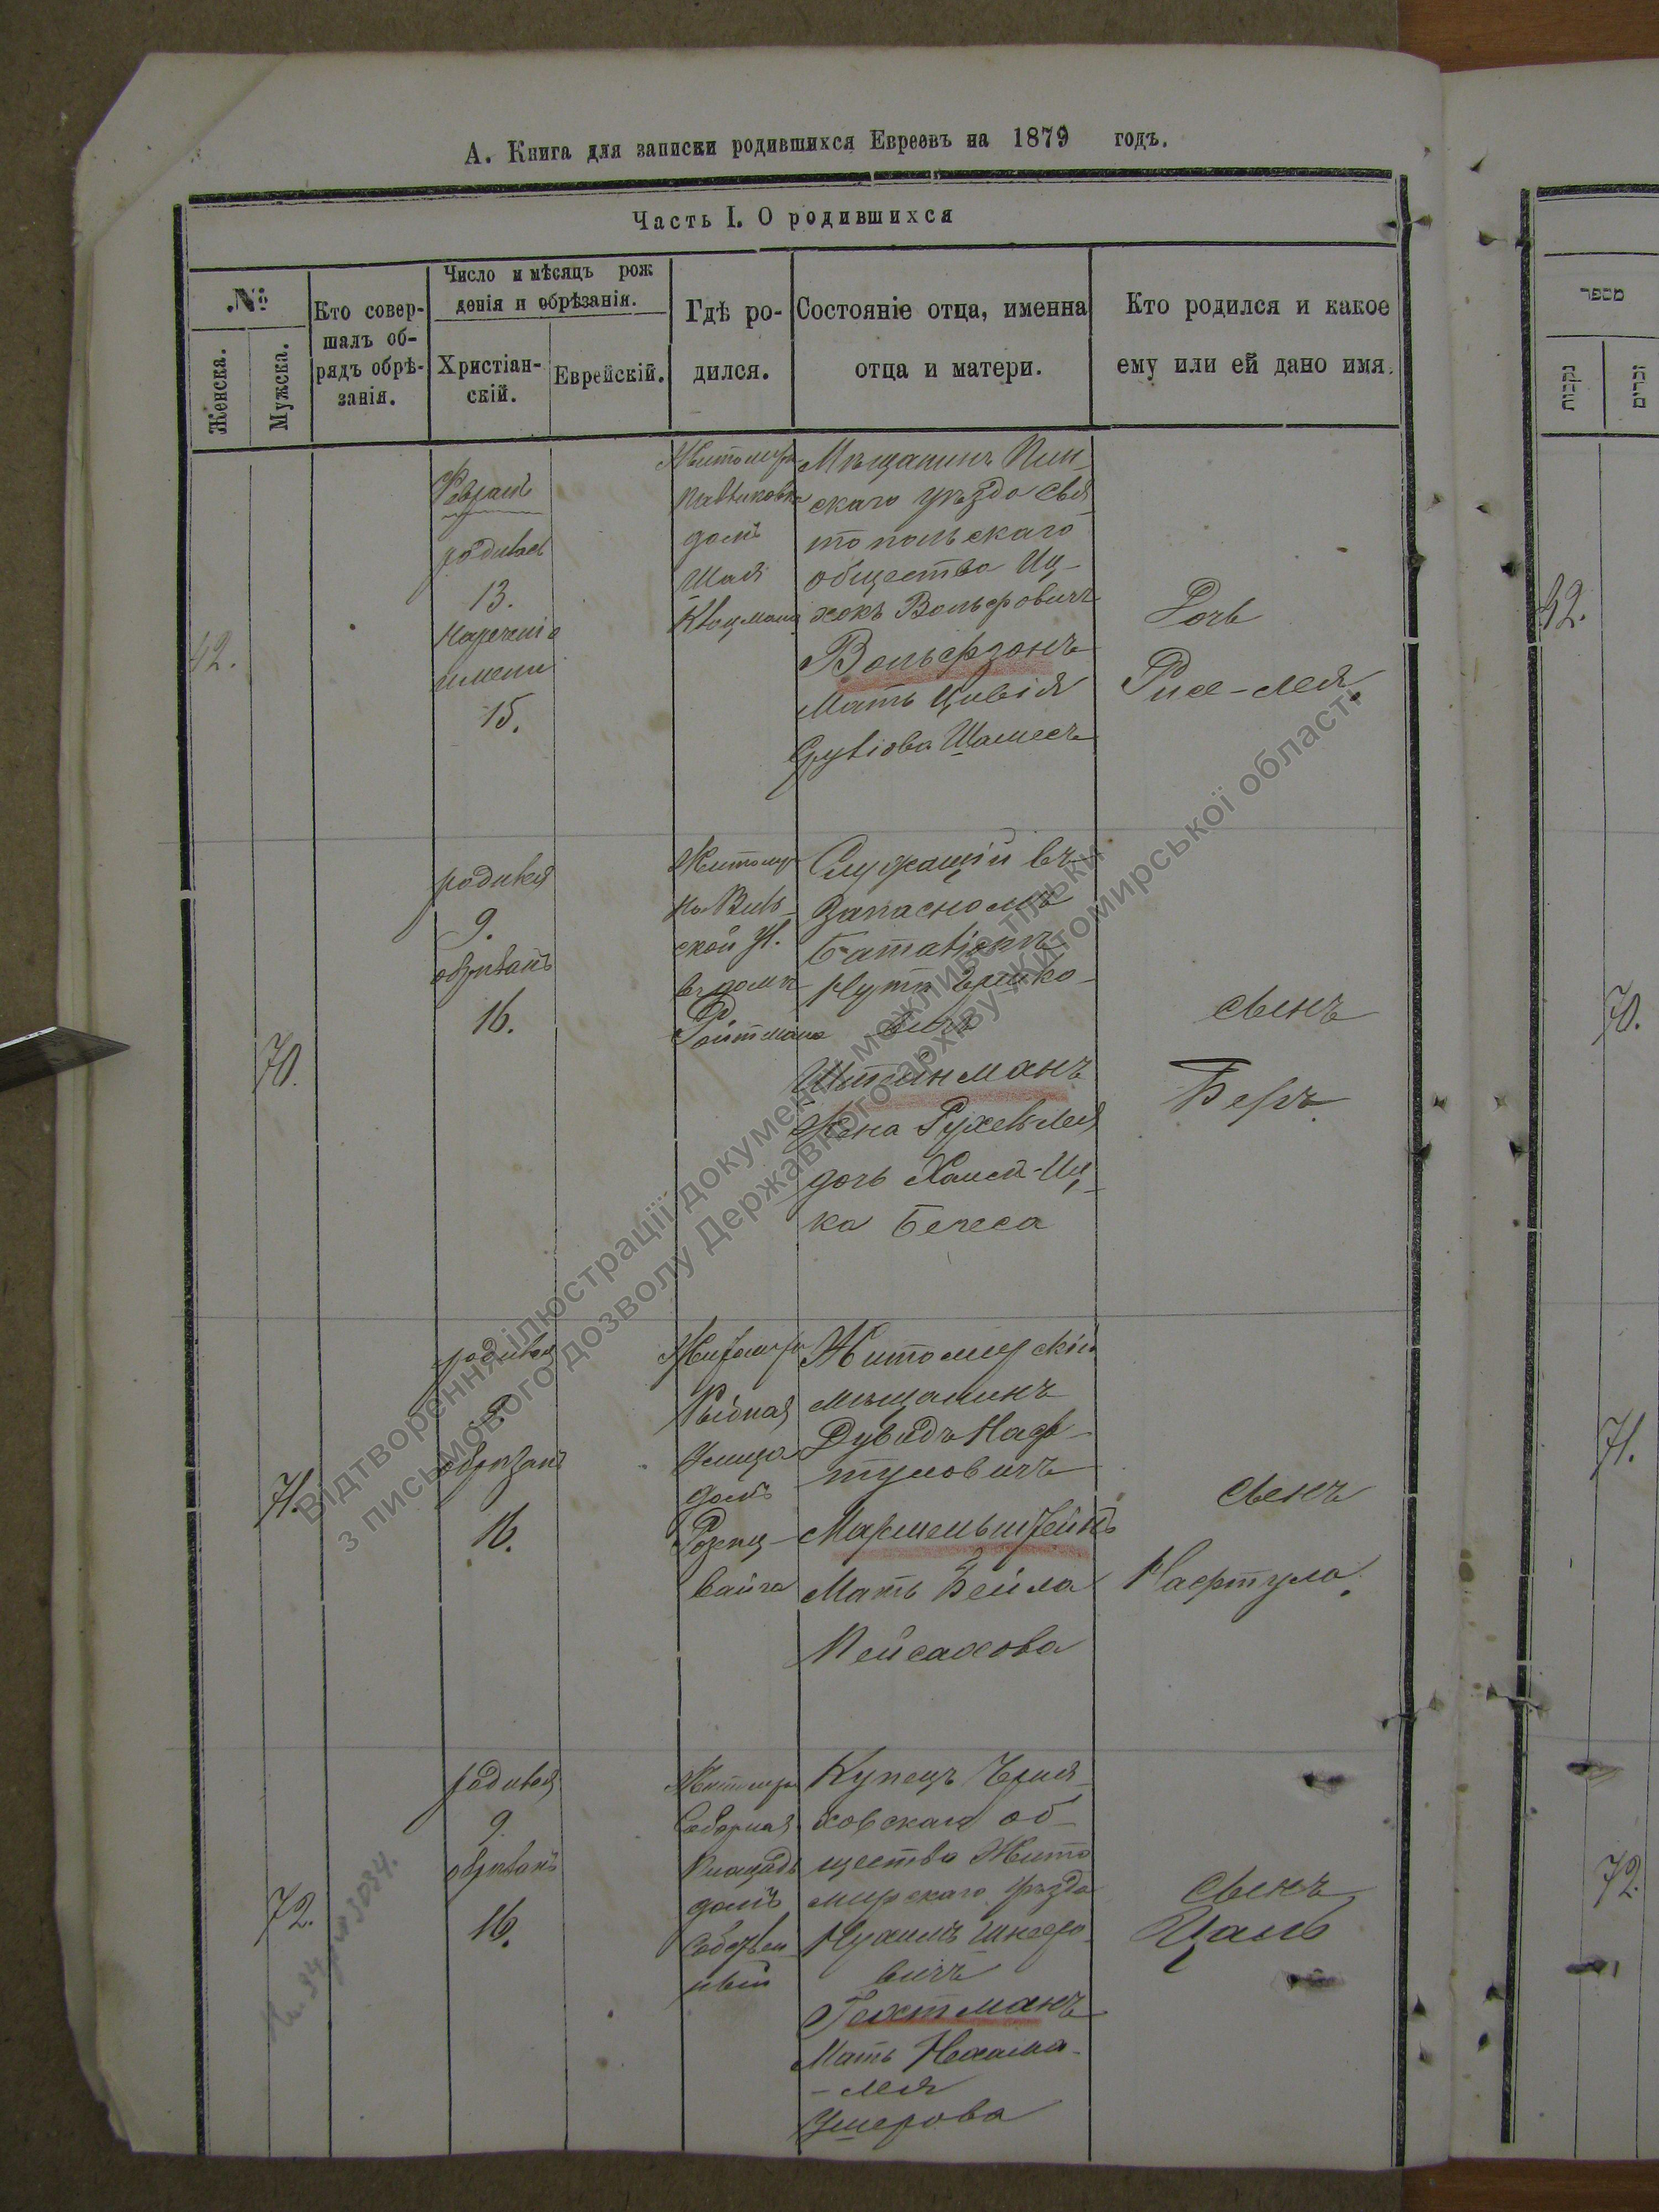 А. Книга для записки родившихся Евреевъ на 1879 годъ.
Часть I. О родившихся
№
Женска.
Мужска.
Кто совер-
шалъ об-
рядъ обрѣ-
занія.
Число и мѣсяцъ рож
денія и обрѣзанія.
Христіан-
скій.
Еврейскій.
Гдѣ ро-
дился.
Состояніе отца, именна
отца и матери.
Кто родился и какое
ему или ей дано имя.
42.
Февраль
родилась
13.
Наречено
имени
15.
Житомиръ
домъ
Мѣщанинъ Пин-
скаго уѣзда Свя
топольскаго
общества Иц-
хокъ Вольфовичъ
Вольфзонъ
Мать Цивія
Шамесъ
Дочь
Рися-лея.
70.
родился
9.
обрѣзанъ
16.
Житомир
на Виль-
ской ул.
въ домѣ
Ройтмана
Служащій въ
Запасномъ
Баталіонѣ
Нутъ Ершко-
вичъ
Штинманъ
Жена Рухель-Лея
дочь Хаим-Иц-
ка Бегеса
сынъ
Беръ.
71.
родился
9.
обрѣзанъ
16.
Житомиръ
Рыбная
Улица
домъ
Розенц-
вайга
Житомирскій
мѣщанинъ
Дувидъ Наф-
туловичъ
Мармельштейнъ
Мать Бейла
Пейсахова
сынъ
Нафтула.
72.
родился
9.
обрѣзанъ
16.
Житомиръ
Соборная
Площадь
домъ
собствен-
ный
Купецъ Черня-
ховскаго об-
щества Жито
мирскаго уѣзда
Нухимъ Шнеро-
вичъ
Гехтманъ
Мать Нехама-
-лея
Ушерова
сынъ
Цаль
Відтворення ілюстрації документу можливо тільки
з письмового дозволу Державного архіву Житомирської області
מספר
נקבות
זכרים
42.
70.
71.
72.